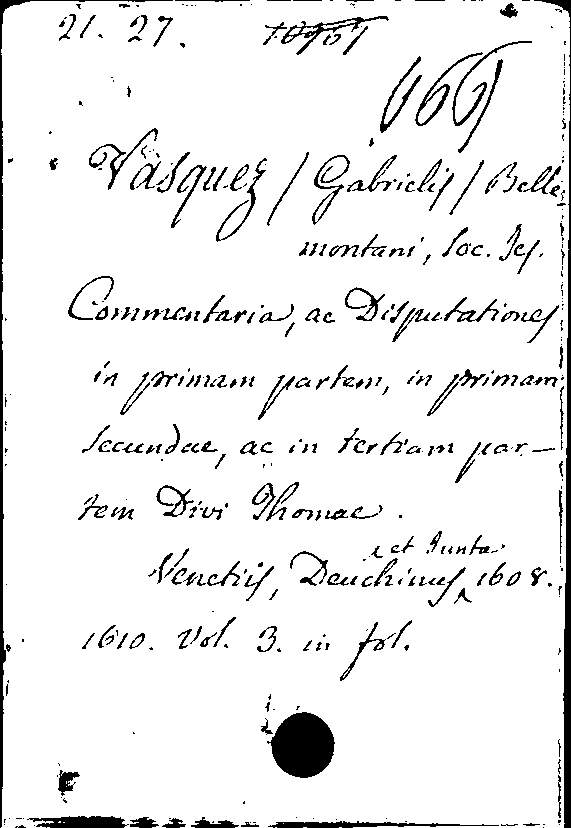 21. 27.
166
Vasquez / Gabrielis / Belle-
montani, Soc. Jes.
Commentaria, ac Disputationes
in primam partem, in primam
secundae, ac in tertiam par-
tem Divi Thomae.
et Junta
Venetiis, Deuchinus, 1608.
1610. Vol. 3. in fol.